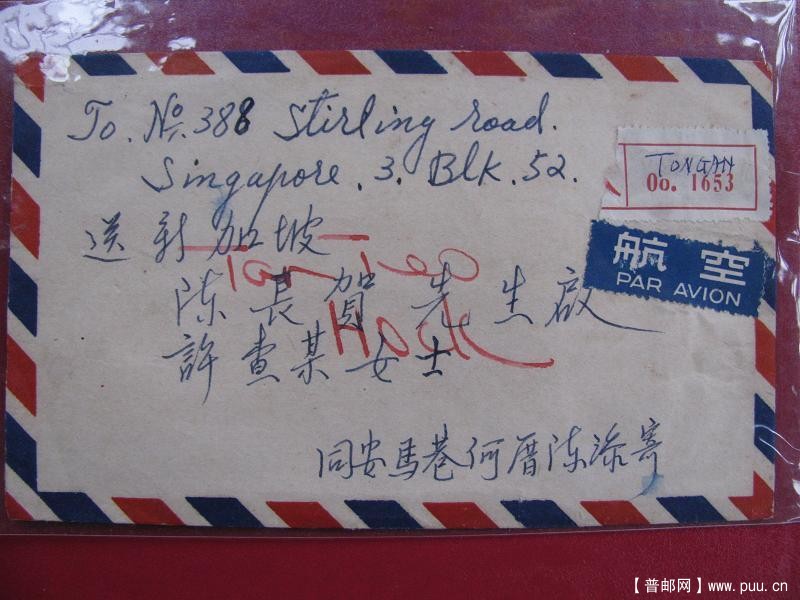 To. No. 388 Stirling road.
Singapore. 3. Blk. 52.
TONGAN
00. 1653
航 空
PAR AVION
送 新 加 坡
陈 長 賀 先 生 啟
許 查 某 女 士
同安馬巷何厝陈添寄
【普邮网】www.puu.cn